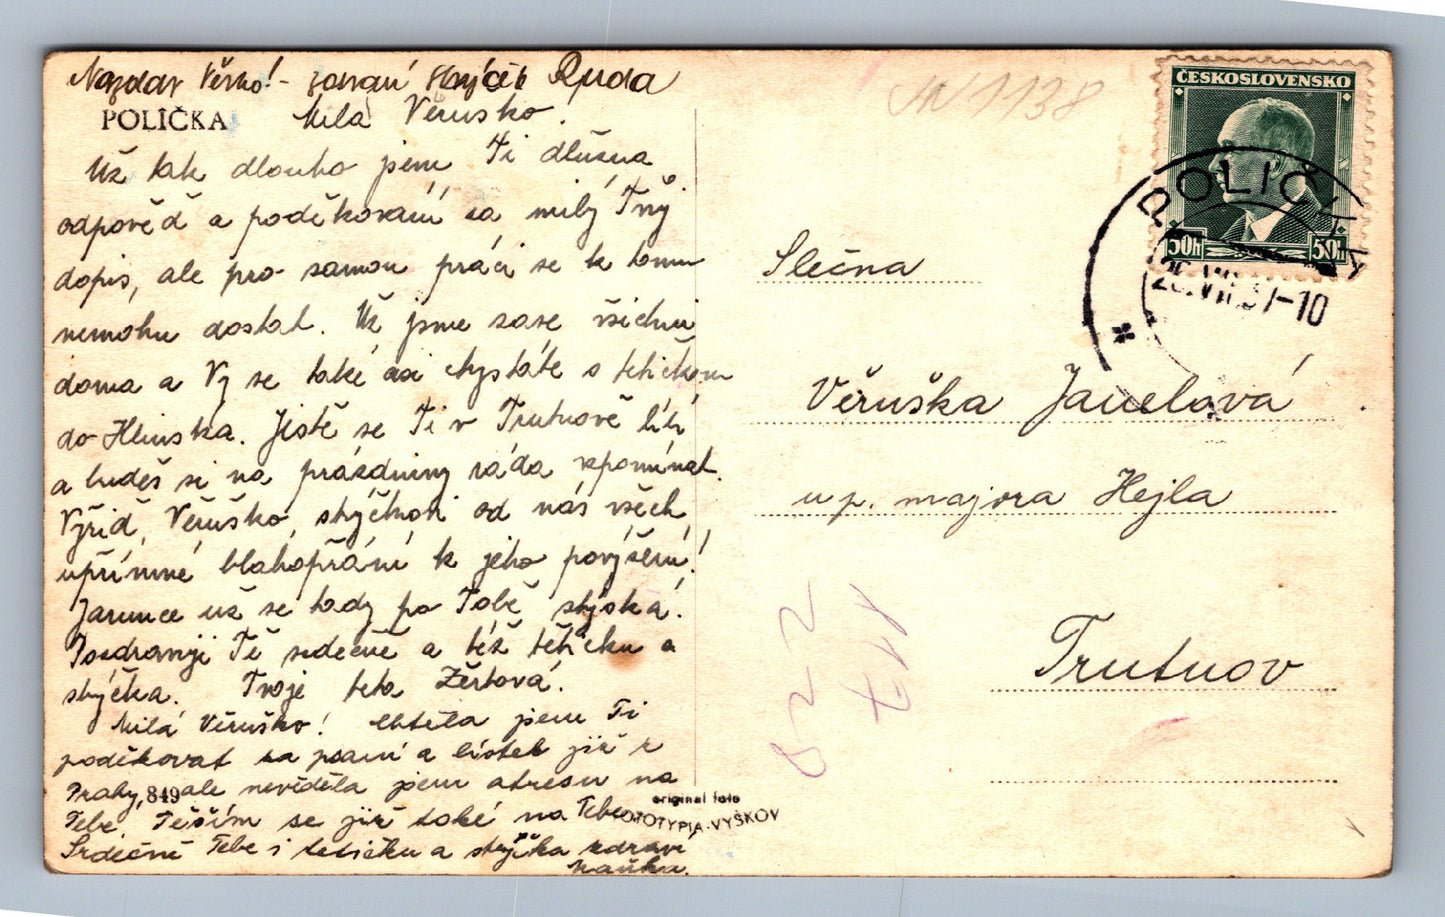 Nazdar Věrko! - zdraví strýček Ruda
POLIČKA
Milá Věrusko.
Už tak dlouho jsem Ti dlužna
odpověď a poděkování za milý Tvůj
dopis, ale pro samou práci se k tomu
nemohu dostat. Už jsme zase všichni
doma a Vy se také asi chystáte s tetičkou
do Hlinska. Jistě se Ti v Trutnově líbí
a budeš si na prázdniny ráda vzpomínat.
Vyřiď, Věruško, strýčkovi od nás všech
upřímné blahopřání k jeho povýšení!
Jarunce už se tady po Tobě stýská.
Pozdravuji Tě srdečně a též tetičku a
strýčka. Tvoje teta Žertová.
Milá Věruško! Chtěla jsem Ti
poděkovat za psaní a lístek již z
Prahy, ale nevěděla jsem adresu na
849
Tebe. Těším se již také na Tebe.
Srdečně Tebe i tetičku a strýčka zdraví
original foto
FOTOTYPIA-VYŠKOV
JN 1138
ČESKOSLOVENSKO
50h 50h
POLIČKA
Slečna
Věruška Janelová
u p. majora Hejla
Trutnov
117
228